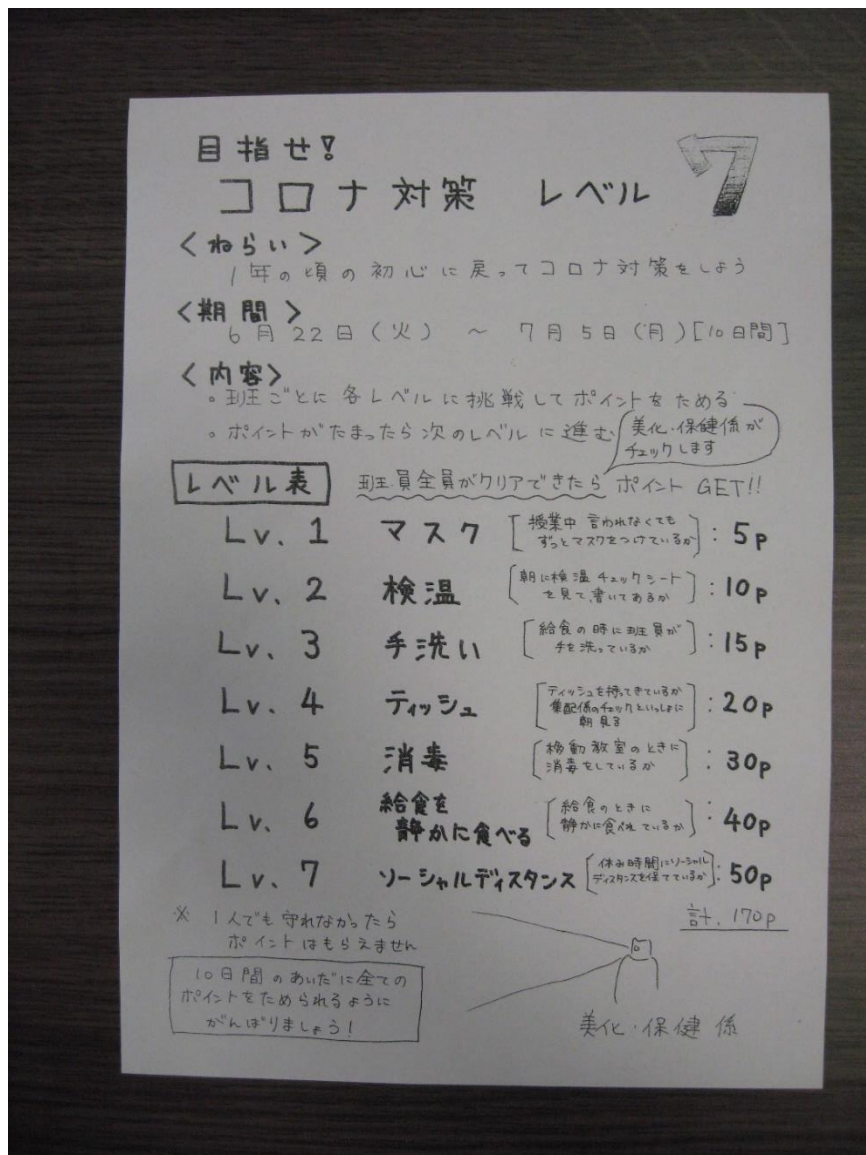 目指せ!
コロナ対策 レベル 7
<ねらい>
1年の頃の初心に戻ってコロナ対策をしよう
<期間>
6月22日(火) ~ 7月5日(月)[10日間]
<内容>
。班ごとに各レベルに挑戦してポイントをためる
。ポイントがたまったら次のレベルに進む
美化・保健係が
チェックします
レベル表 班員全員がクリアできたら ポイント GET!!
Lv. 1 マスク [授業中 言われなくても
ずっとマスクをつけているか] : 5p
Lv. 2 検温 [朝に検温チェックシート
を見て、書いてあるか] : 10p
Lv. 3 手洗い [給食の時に班員が
手を洗っているか] : 15p
Lv. 4 ティッシュ [ティッシュを持ってきているか
集配係のチェックといっしょに
朝見る] : 20p
Lv. 5 消毒 [移動教室のときに
消毒をしているか] : 30p
Lv. 6 給食を
静かに食べる [給食のときに
静かに食べれているか] : 40p
Lv. 7 ソーシャルディスタンス [休み時間にソーシャル
ディスタンスを保てているか] : 50p
計. 170p
※ 1人でも守れなかったら
ポイントはもらえません
10日間のあいだに全ての
ポイントをためられるように
がんばりましょう!
美化・保健係